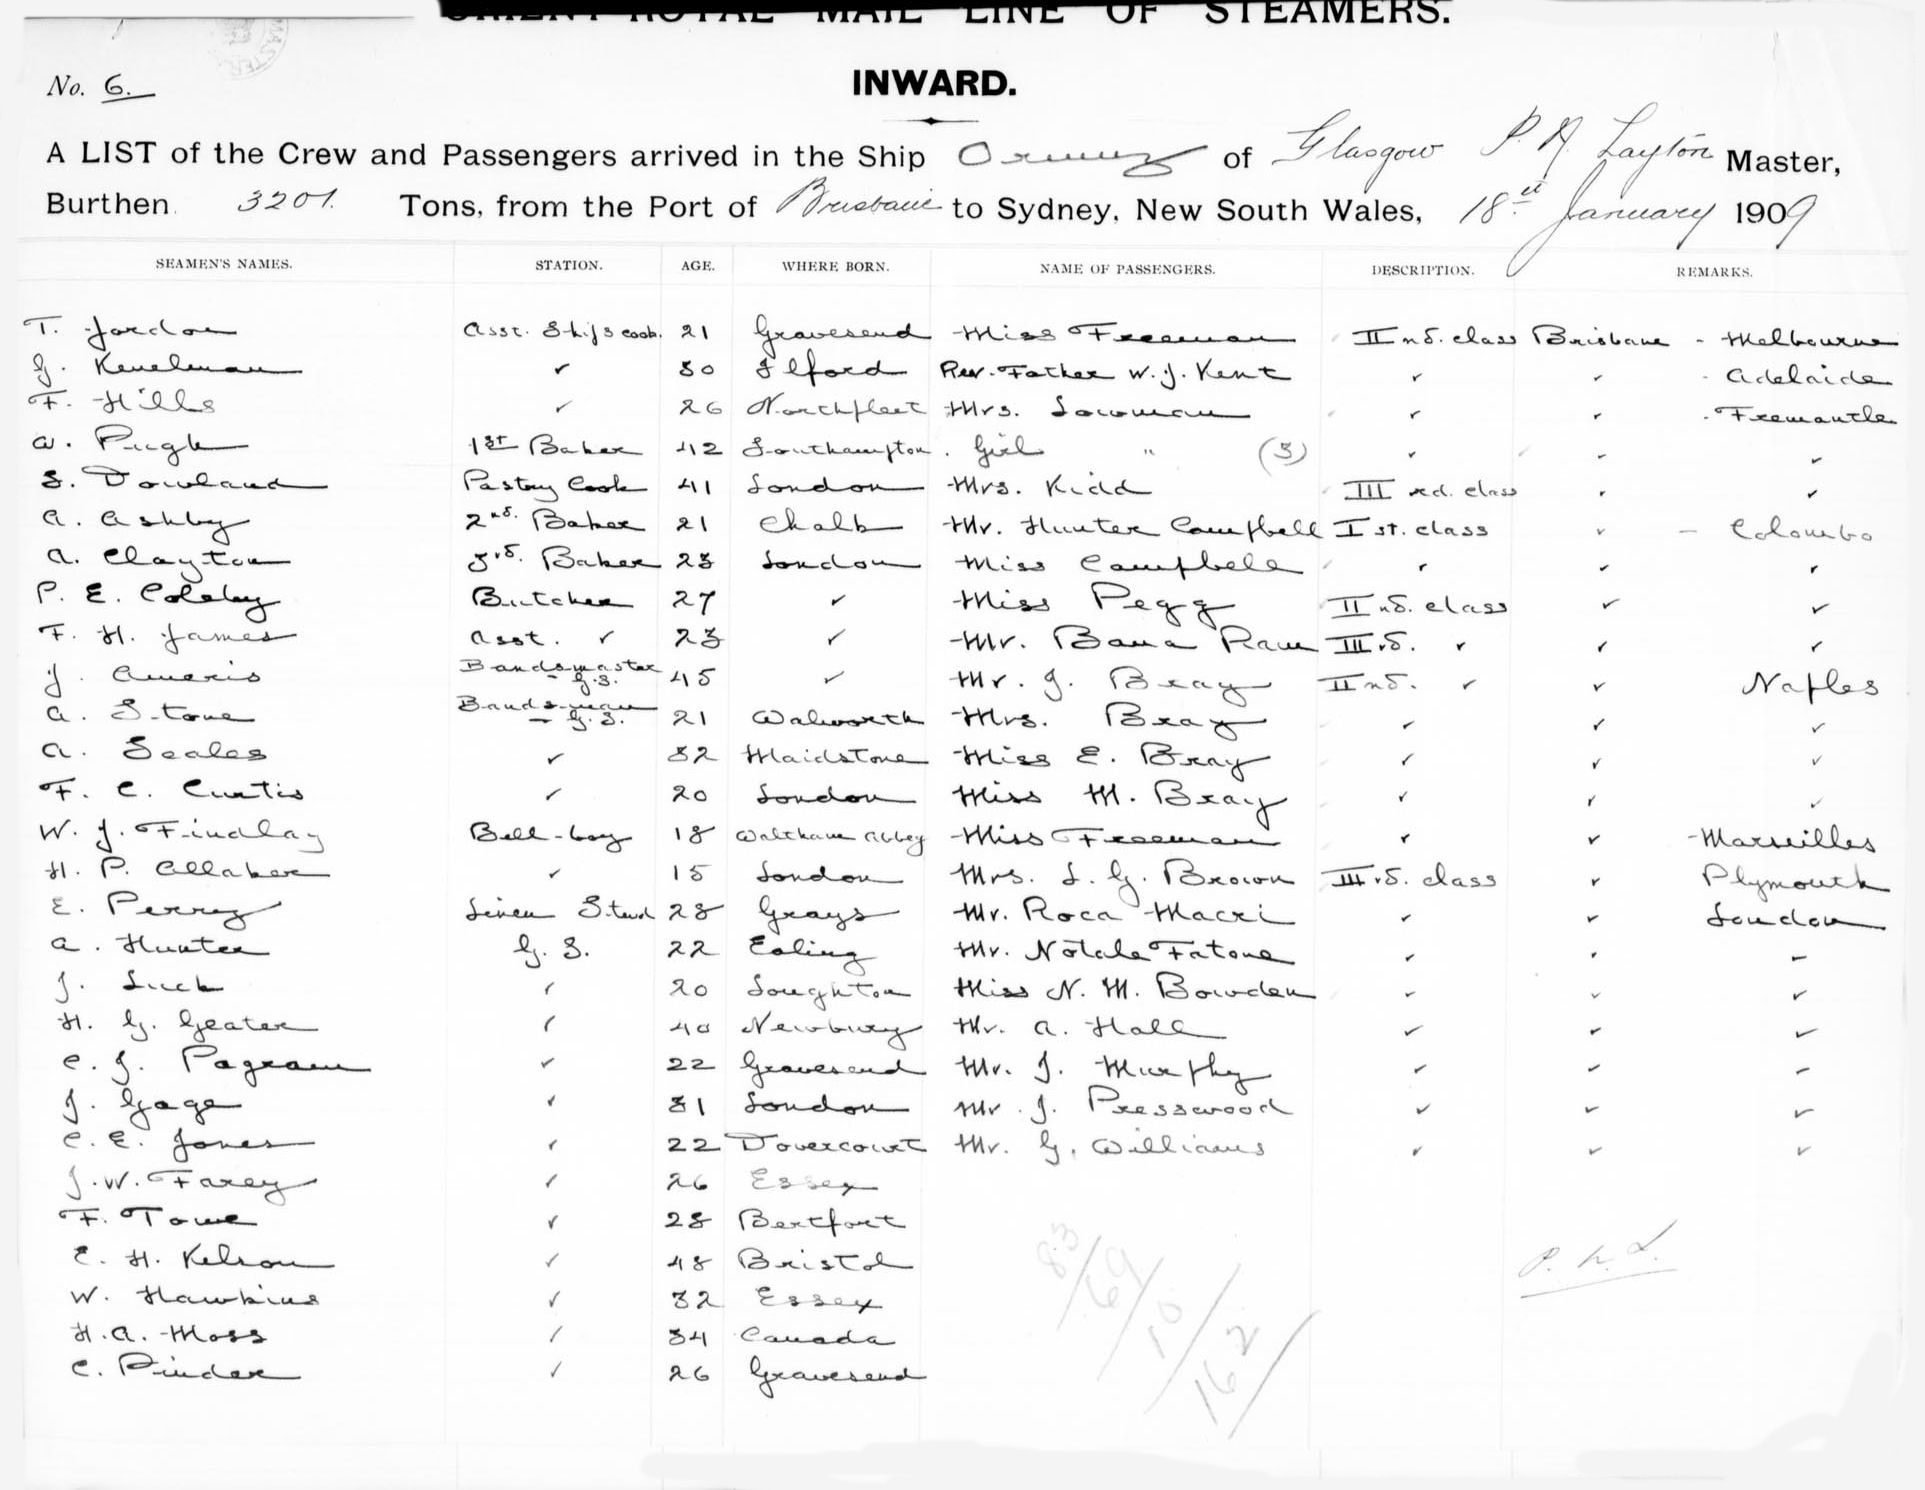 ORIENT ROYAL MAIL LINE OF STEAMERS.
No. 6.
INWARD.
A LIST of the Crew and Passengers arrived in the Ship Ormuz of Glasgow P. A. Layton Master,
Burthen 3201. Tons, from the Port of Brisbane to Sydney, New South Wales, 18th January 1909
SEAMEN'S NAMES. STATION. AGE. WHERE BORN. NAME OF PASSENGERS. DESCRIPTION. REMARKS.
T. Jordon Asst. Ship's cook. 21 Gravesend Miss Freeman IInd. class Brisbane - Melbourne
G. ✓ 30 Ilford Rev. Father W. J. Kent ✓ ✓ - Adelaide
F. Hills ✓ 26 Northfleet Mrs. Lowman ✓ ✓ - Fremantle
W. Pugh 1st Baker 42 Southampton. Girl " (3) ✓ ✓ ✓
S. Dowland Pastry Cook 41 London Mrs. Kidd III rd. class ✓ ✓
A. Ashby 2nd. Baker 21 Chalk Mr. Hunter Campbell I st. class ✓ - Colombo
A. Clayton 3rd. Baker 23 London Miss Campbell ✓ ✓ ✓
P. E. Coleby Butcher 27 ✓ Miss Pegg IInd. class ✓ ✓
F. H. James Asst. ✓ 23 ✓ Mr. Bana Ram IIIrd. ✓ ✓ ✓
J. Ameris Bandsmaster G.S. 45 ✓ Mr. J. Bray IInd. ✓ ✓ Naples
A. Stone Bandsman G.S. 21 Walworth Mrs. Bray ✓ ✓ ✓
A. Scales ✓ 32 Maidstone Miss E. Bray ✓ ✓ ✓
F. C. Curtis ✓ 20 London Miss M. Bray ✓ ✓ ✓
W. J. Findlay Bell-boy 18 Waltham Abbey Miss Freeman ✓ ✓ - Marseilles
H. P. Allaker ✓ 15 London Mrs. L. G. Brown IIIrd. class ✓ Plymouth
E. Perry Linen Stwd 28 Grays Mr. Roca Macri ✓ ✓ London
A. Hunter G. S. 22 Ealing Mr. Notale Fatone ✓ ✓ ✓
J. Luck ✓ 20 Loughton Miss N. M. Bowden ✓ ✓ ✓
H. G. Geater ✓ 40 Newbury Mr. A. Hall ✓ ✓ ✓
C. J. Pagram ✓ 22 Gravesend Mr. J. Murphy ✓ ✓ ✓
J. Gage ✓ 31 London Mr. J. Presswood ✓ ✓ ✓
C. E. Jones ✓ 22 Dovercourt Mr. G. Williams ✓ ✓ ✓
J. W. Farey ✓ 26 Essex
F. Towe ✓ 28 Bertfort
E. H. Kelson ✓ 48 Bristol
W. Hawkins ✓ 32 Essex
H. A. Moss ✓ 34 Canada
C. Pinder ✓ 26 Gravesend
83/69/10/162/